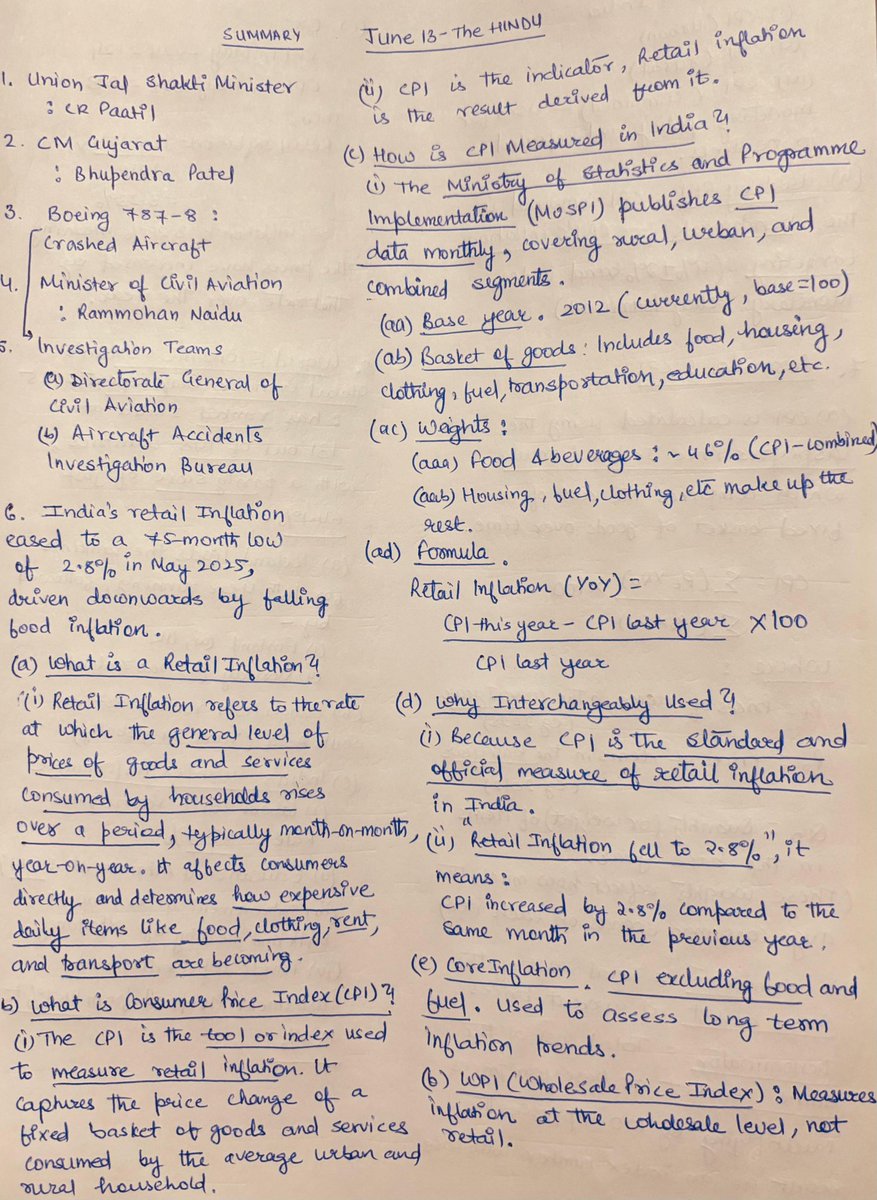 SUMMARY June 13 - The HINDU
1. Union Jal Shakti Minister
: CR Paatil
2. CM Gujarat
: Bhupendra Patel
3. Boeing 787-8 :
Crashed Aircraft
4. Minister of Civil Aviation
: Rammohan Naidu
5. Investigation Teams
(a) Directorate General of
Civil Aviation
(b) Aircraft Accidents
Investigation Bureau
6. India's retail Inflation
eased to a 75-month low
of 2.8% in May 2025,
driven downwards by falling
food inflation.
(a) What is a Retail Inflation?!
(i) Retail Inflation refers to the rate
at which the general level of
prices of goods and services
consumed by households rises
over a period, typically month-on-month,
year-on-year. It affects consumers
directly and determines how expensive
daily items like food, clothing, rent,
and transport are becoming.
b) What is Consumer Price Index (CPI)?!
(i) The CPI is the tool or index used
to measure retail inflation. It
captures the price change of a
fixed basket of goods and services
consumed by the average urban and
rural household.
(ii) CPI is the indicator, Retail inflation
is the result derived from it.
(c) How is CPI Measured in India?!
(i) The Ministry of Statistics and Programme
Implementation (MoSPI) publishes CPI
data monthly, covering rural, urban, and
combined segments.
(aa) Base year. 2012 (currently, base=100)
(ab) Basket of goods: Includes food, housing,
clothing, fuel, transportation, education, etc.
(ac) Weights :
(aaa) Food & beverages : ~46% (CPI-combined)
(aab) Housing, fuel, clothing, etc make up the
rest.
(ad) Formula.
Retail Inflation (YoY) =
CPI this year - CPI last year X100
CPI last year
(d) Why Interchangeably Used?!
(i) Because CPI is the standard and
official measure of retail inflation
in India.
(ii) "Retail Inflation fell to 2.8%", it
means :
CPI increased by 2.8% compared to the
same month in the previous year.
(e) Core Inflation. CPI excluding food and
fuel. Used to assess long term
inflation trends.
(f) WPI (Wholesale Price Index) : Measures
inflation at the wholesale level, not
retail.